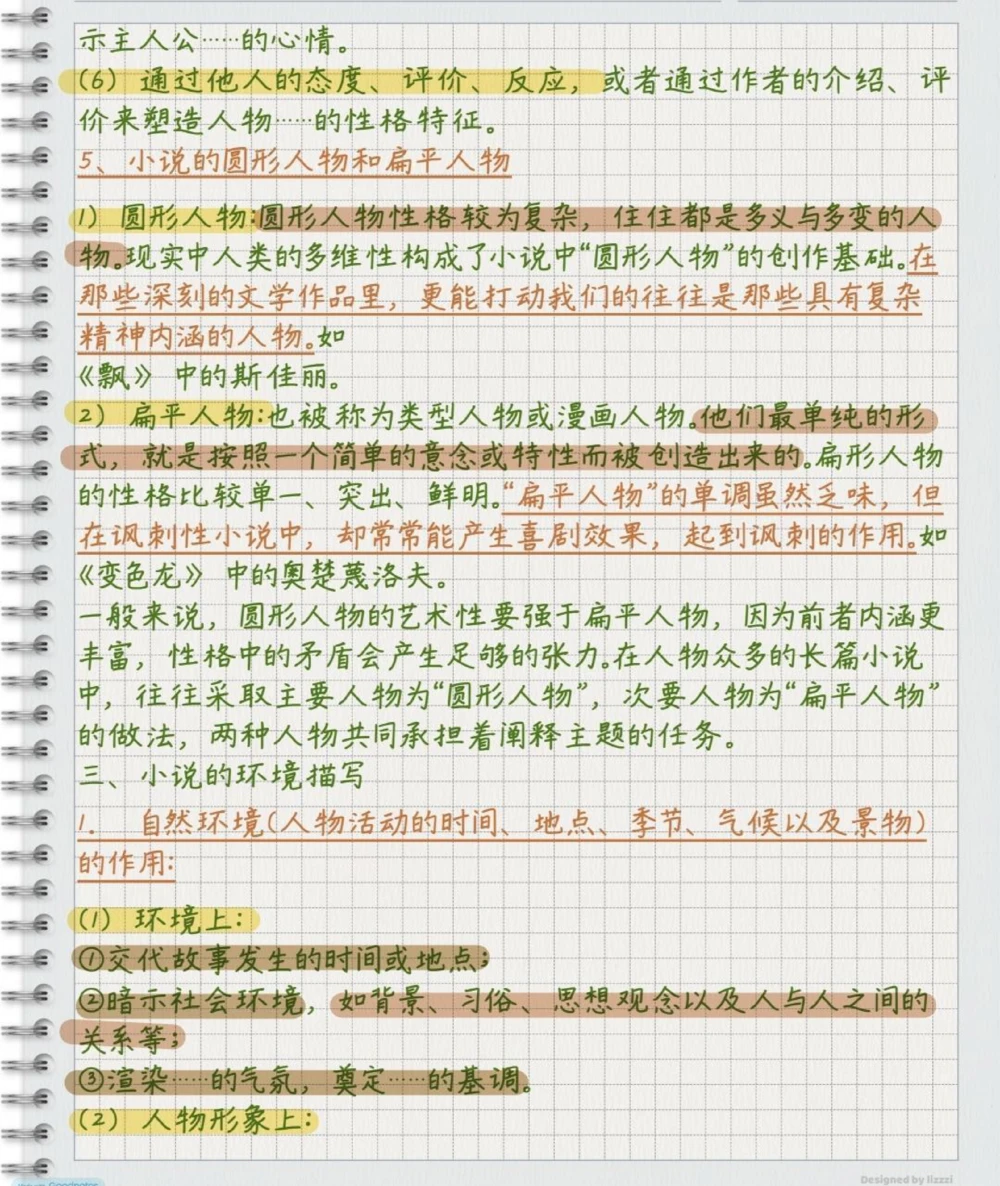 示主人公……的心情。
(6) 通过他人的态度、评价、反应，或者通过作者的介绍、评
价来塑造人物……的性格特征。
5、小说的圆形人物和扁平人物
1) 圆形人物:圆形人物性格较为复杂，住住都是多义与多变的人
物。现实中人类的多维性构成了小说中“圆形人物”的创作基础。在
那些深刻的文学作品里，更能打动我们的往往是那些具有复杂
精神内涵的人物。如
《飘》中的斯佳丽。
2) 扁平人物:也被称为类型人物或漫画人物。他们最单纯的形
式，就是按照一个简单的意念或特性而被创造出来的。扁形人物
的性格比较单一、突出、鲜明。“扁平人物”的单调虽然乏味，但
在讽刺性小说中，却常常能产生喜剧效果，起到讽刺的作用。如
《变色龙》中的奥楚蔑洛夫。
一般来说，圆形人物的艺术性要强于扁平人物，因为前者内涵更
丰富，性格中的矛盾会产生足够的张力。在人物众多的长篇小说
中，往往采取主要人物为“圆形人物”，次要人物为“扁平人物”
的做法，两种人物共同承担着阐释主题的任务。
三、小说的环境描写
1. 自然环境(人物活动的时间、地点、季节、气候以及景物)
的作用:
(1) 环境上:
①交代故事发生的时间或地点;
②暗示社会环境，如背景、习俗、思想观念以及人与人之间的
关系等;
③渲染……的气氛，奠定……的基调。
(2) 人物形象上:
Designed by lizzzi